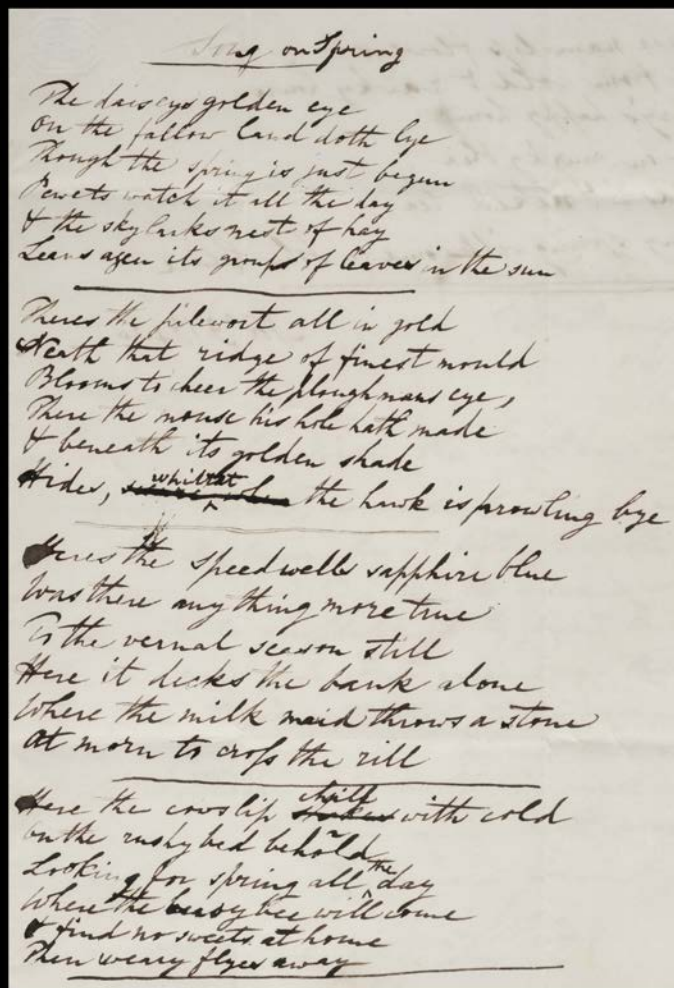 Song on Spring
The daiseys golden eye
On the fallow land doth lye
Though the spring is just begun
Pewets watch it all the day
& the skylarks nest of hay
Leans agen its groups of leaves in the sun
Theres the pilewort all in gold
Neath that ridge of finest mould
Blooms to cheer the ploughmans eye,
There the mouse his hole hath made
& beneath its golden shade
Hides, whilst the hawk is prowling bye
Heres the speedwells sapphire blue
Was there any thing more true
To the vernal season still
Here it decks the bank alone
Where the milk maid throws a stone
At morn to cross the rill
Here the cowslip chill with cold
On the rushy bed behold
Looking for spring all the day
Where the bee will come
& find no sweets at home
Then weary flyes away